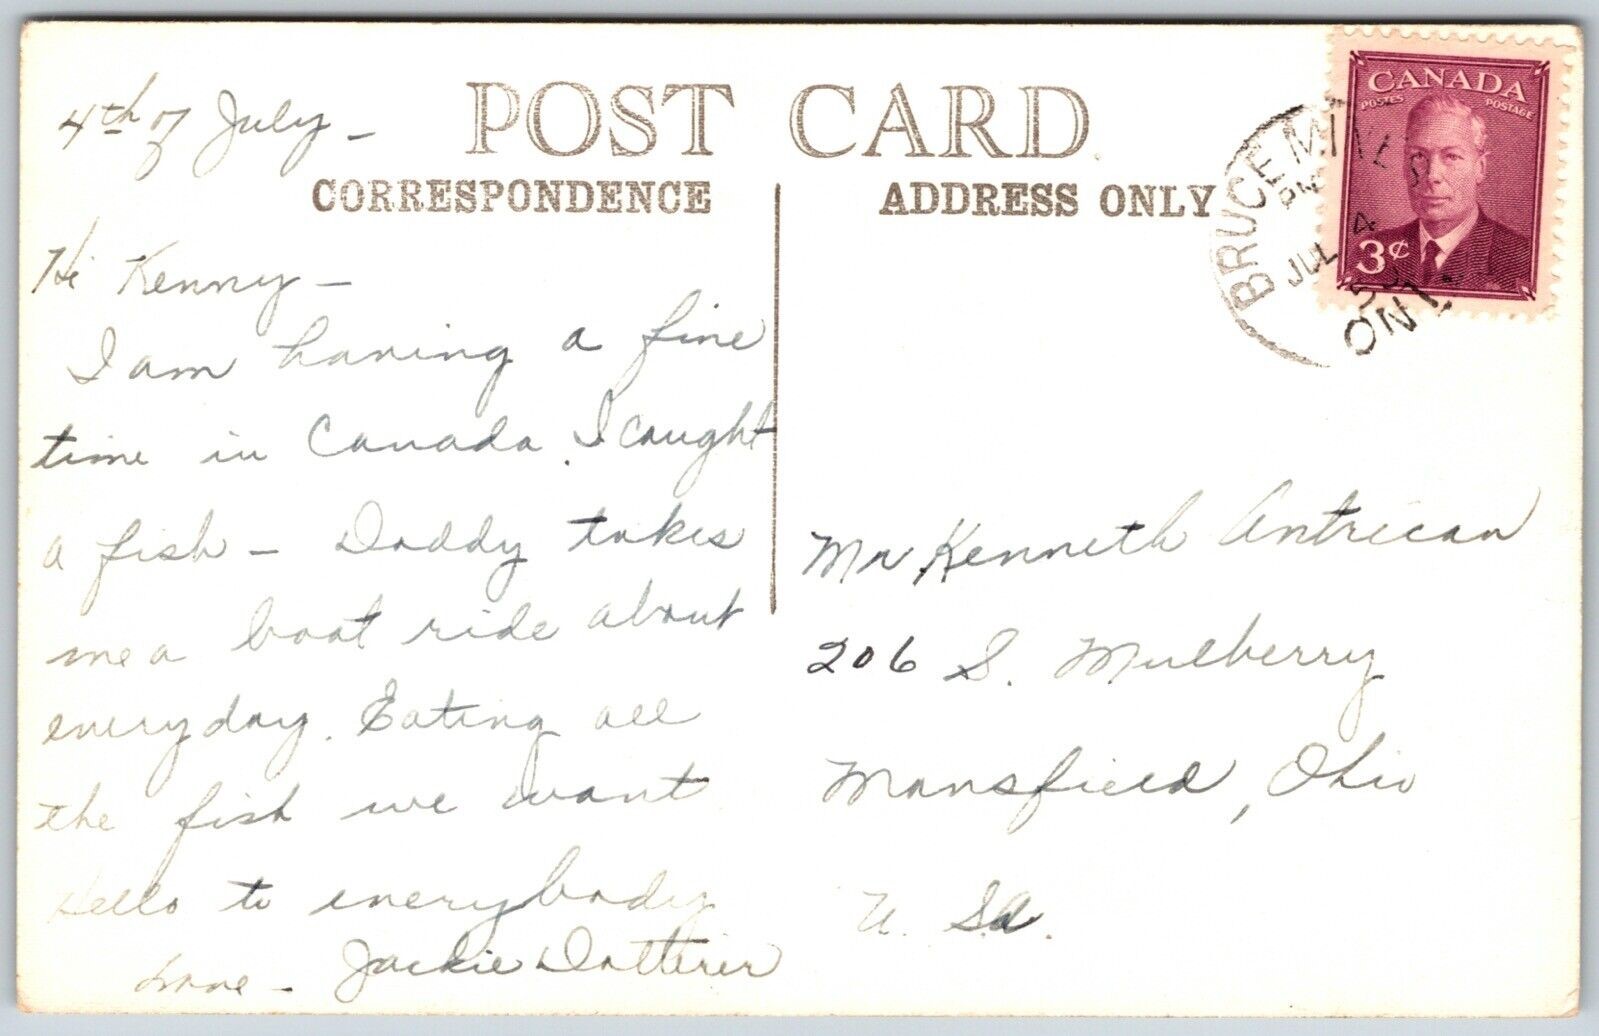 POST CARD
CORRESPONDENCE
ADDRESS ONLY
CANADA
POSTES POSTAGE
3¢
BRUCE MINES
PM
JUL 4
ONT
4th of July –
Hi Kenny –
I am having a fine
time in Canada. I caught
a fish – Daddy takes
me a boat ride about
everyday. Eating all
the fish we want
Hello to everybody
Love – Jackie Dotterer
Mr Kenneth Antrican
206 S. Mulberry
Mansfield, Ohio
U. S.A.